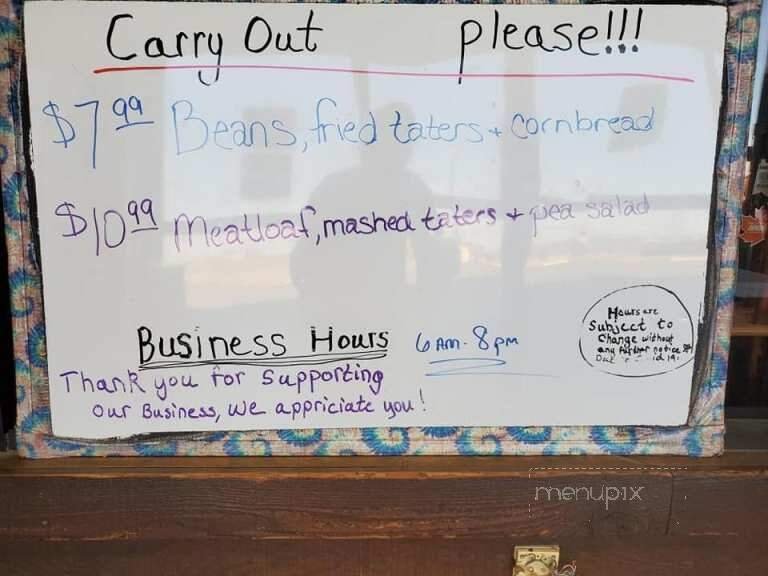 Carry Out please!!!
$7.99 Beans, fried taters + cornbread
$10.99 Meatloaf, mashed taters + pea salad
Business Hours 6 AM - 8 PM
Hours are
Subject to
Change without
any further notice
Thank you for Supporting
Our Business, We appriciate you!
menupix